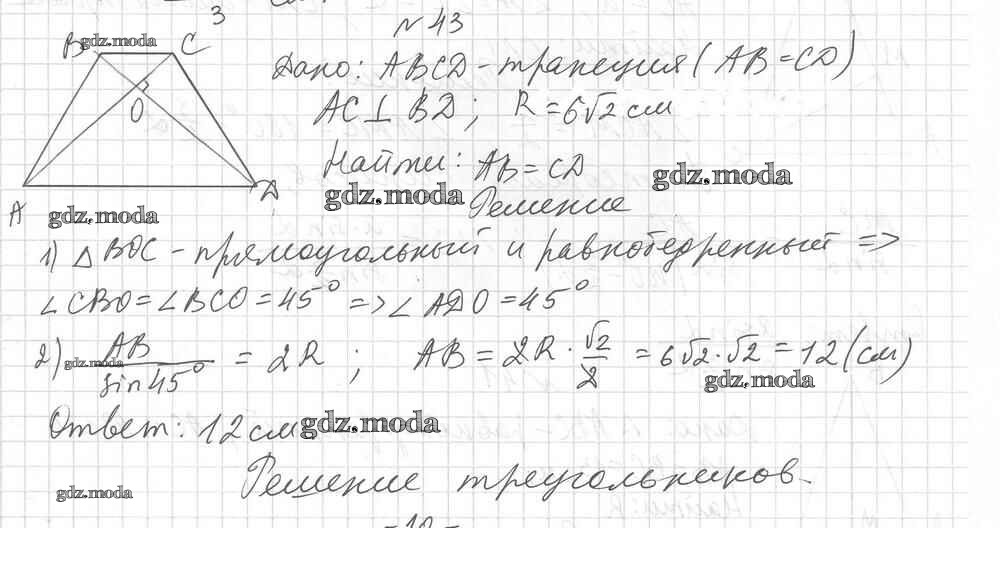 № 43
B C
Дано: ABCD - трапеция (AB = CD)
O
AC ⊥ BD; R = 6√2 см
Найти: AB = CD
A D
Решение
1) △ BOC - прямоугольный и равнобедренный =>
∠CBO = ∠BCO = 45° => ∠ADO = 45°
2) AB/sin45° = 2R; AB = 2R · √2/2 = 6√2 · √2 = 12 (см)
Ответ: 12 см
Решение треугольников.
gdz.moda
gdz.moda
gdz.moda
gdz.moda
gdz.moda
gdz.moda
gdz.moda
gdz.moda